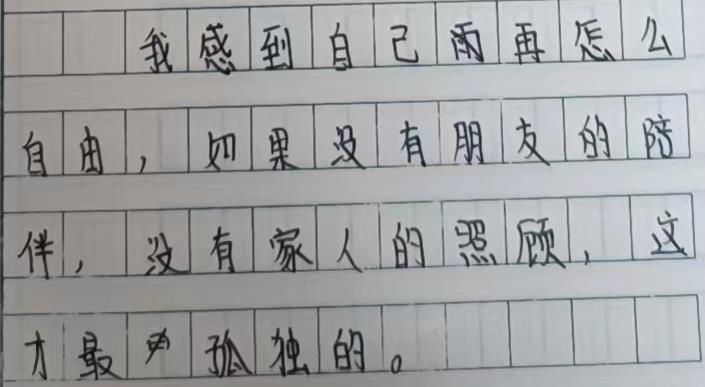 我感到自己雨再怎么
自由，如果没有朋友的陪
伴，没有家人的照顾，这
才最孤独的。